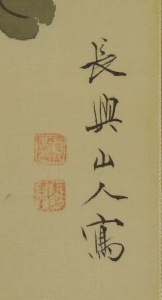 長興山人寫